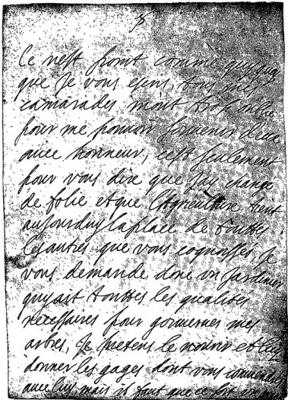 Ce n'est point comme
que Je vous escris, tous mes
camarades m'ont trop
pour me pouvoir souvenir deux
avec honneur, c'est seulement
pour vous dire que J'ay changé
de folie et que l'Agriculture tient
aujourduy la place de touttes
les autres que vous cognoissés, Je
vous demande donc un Jardinier
quy ait touttes les qualités
necessaires pour gouverner mes
arbres, Je pretens le nourir et luy
donner les gages dont vous conviendrés
avec luy mais il faut que ce soit un